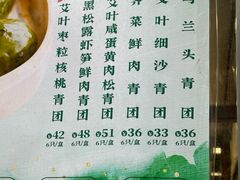 艾叶枣粒核桃青团
黑松露虾笋鲜肉青团
艾叶咸蛋黄肉松青团
荠菜鲜肉青团
艾叶细沙青团
马兰头青团
¥42 ¥48 ¥51 ¥36 ¥33 ¥36
6只/盒 6只/盒 6只/盒 6只/盒 6只/盒 6只/盒